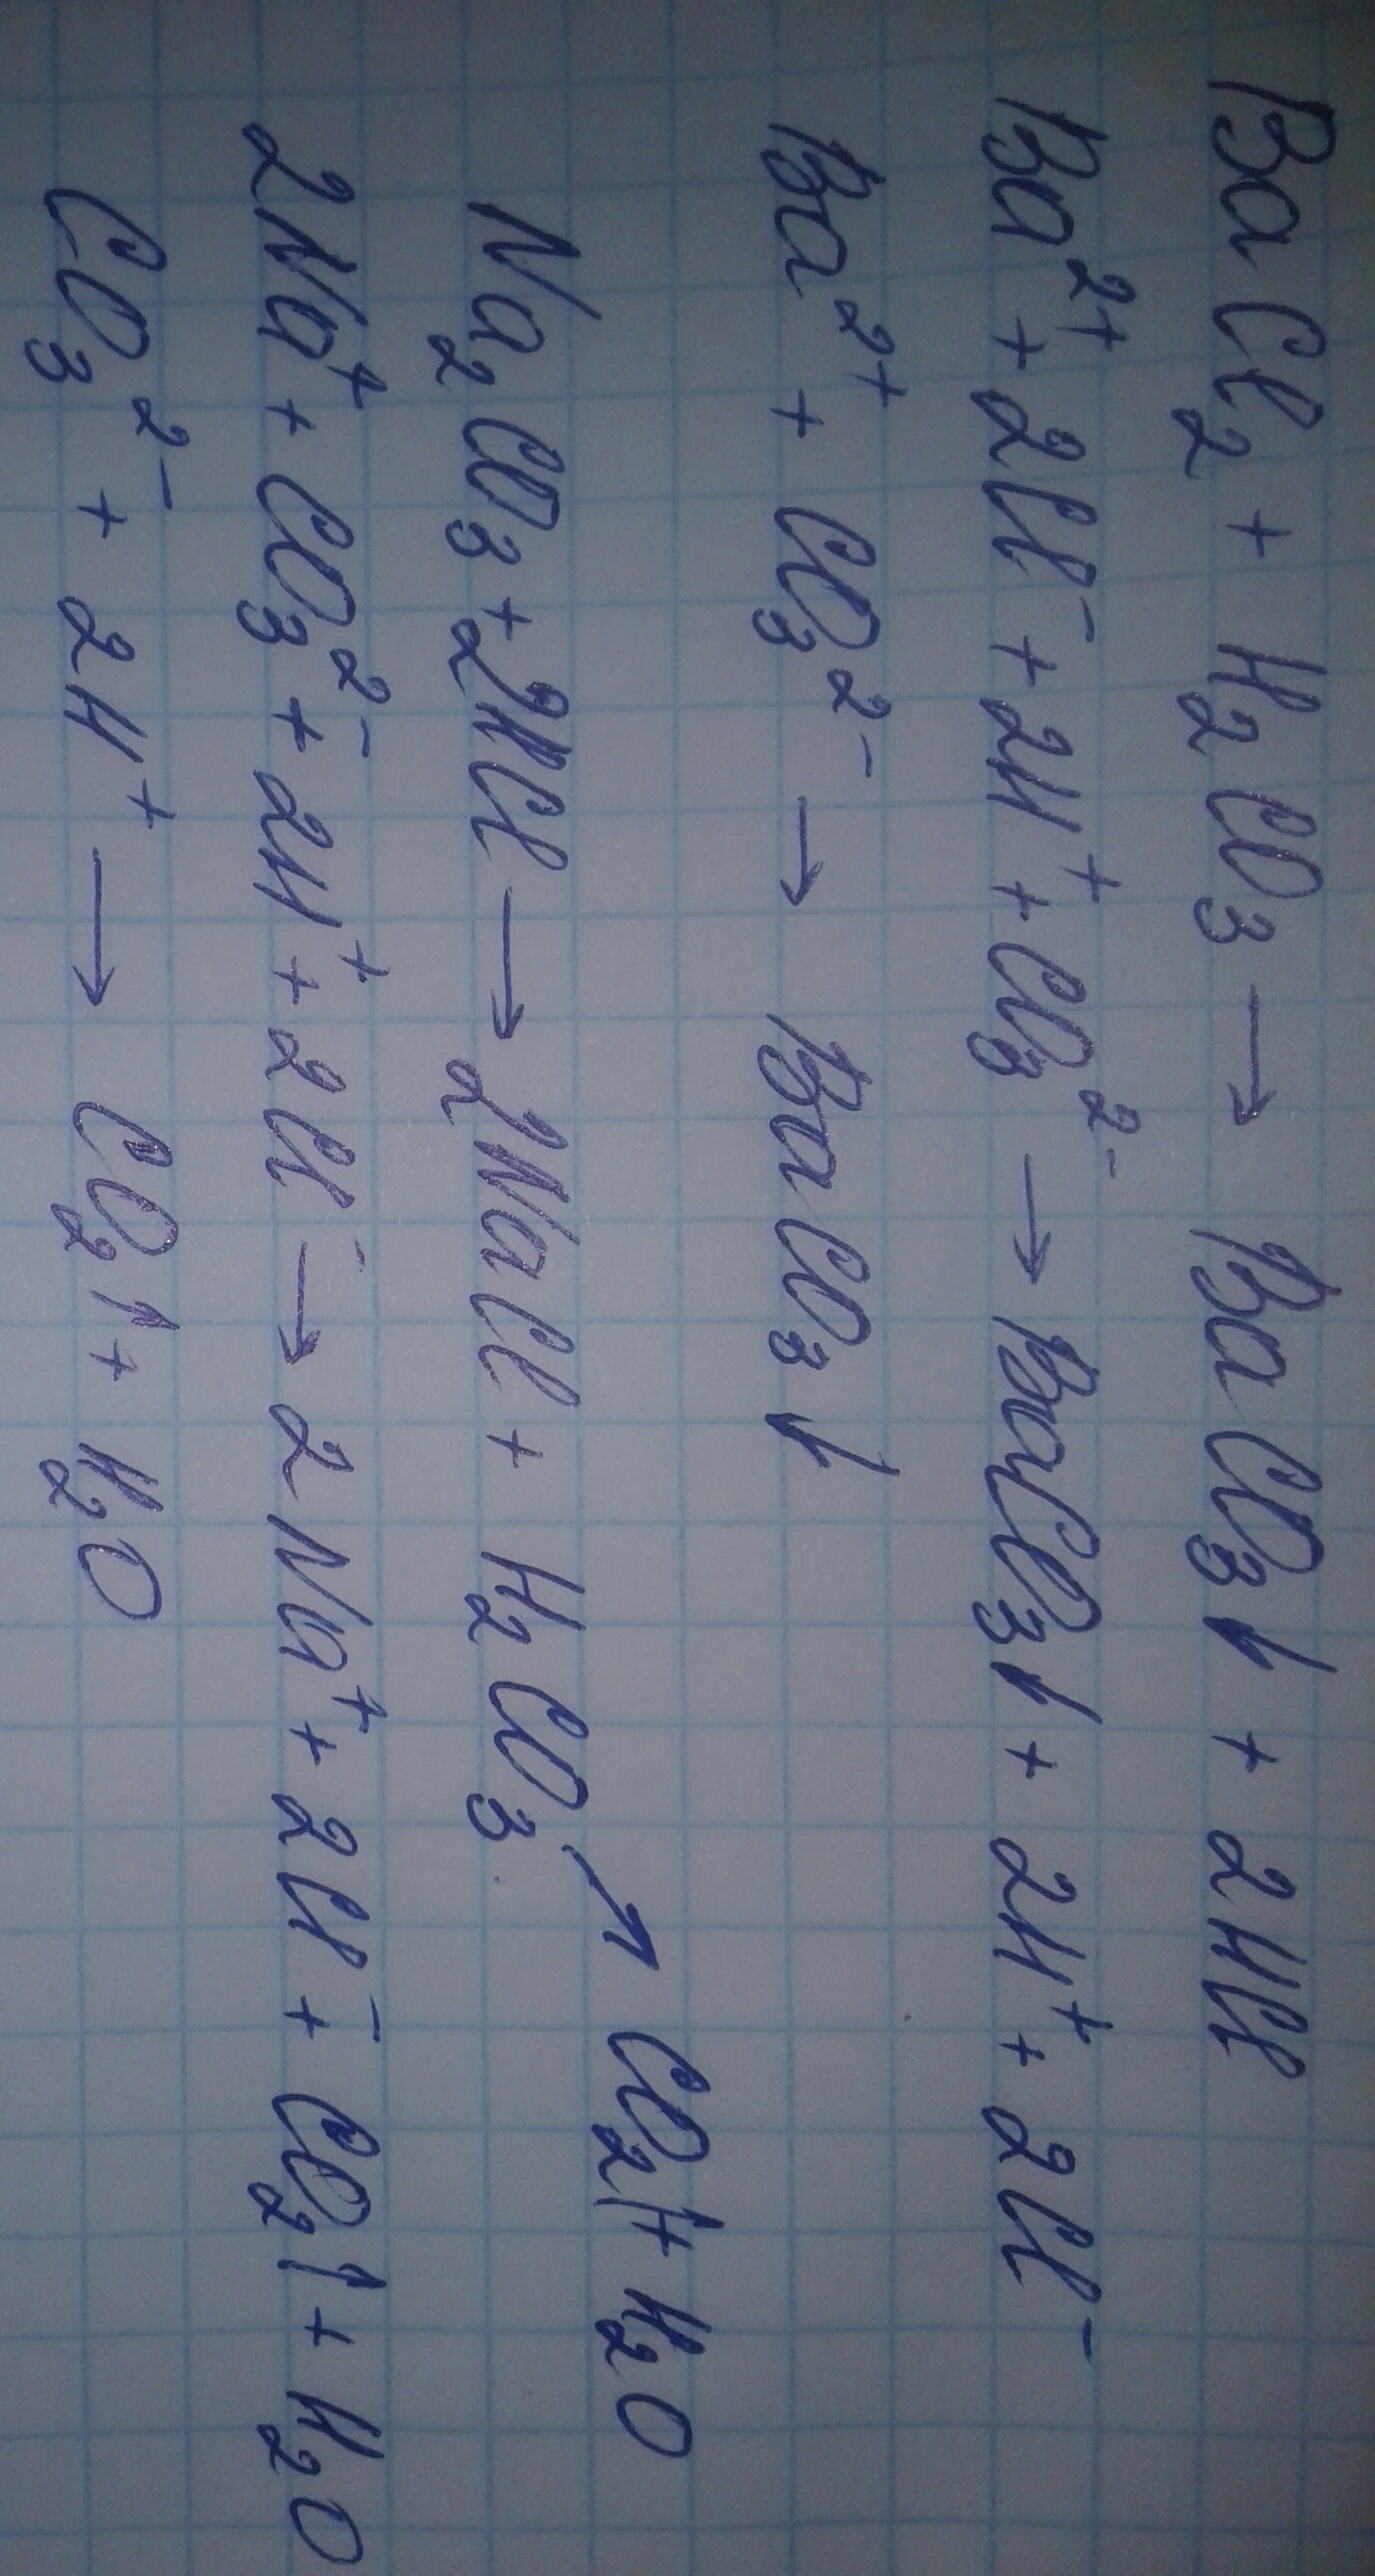 BaCl₂ + H₂CO₃ → BaCO₃↓ + 2HCl
Ba²⁺ + 2Cl⁻ + 2H⁺ + CO₃²⁻ → BaCO₃↓ + 2H⁺ + 2Cl⁻
Ba²⁺ + CO₃²⁻ → BaCO₃↓
Na₂CO₃ + 2HCl → 2NaCl + H₂CO₃ ↗ CO₂↑ + H₂O
2Na⁺ + CO₃²⁻ + 2H⁺ + 2Cl⁻ → 2Na⁺ + 2Cl⁻ + CO₂↑ + H₂O
CO₃²⁻ + 2H⁺ → CO₂↑ + H₂O